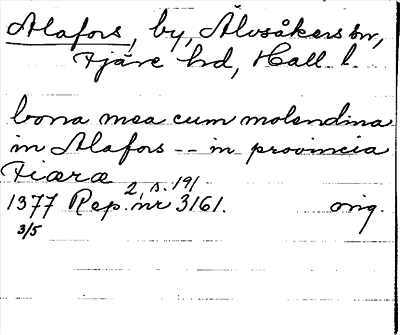 Alafors, by, Älvsåkers sn,
Fjäre hd, Hall. l.
bona mea cum molendina
in Alafors -- in provincia
Fiæra
2, s. 191
1377 Rep. nr 3161. orig.
3/5